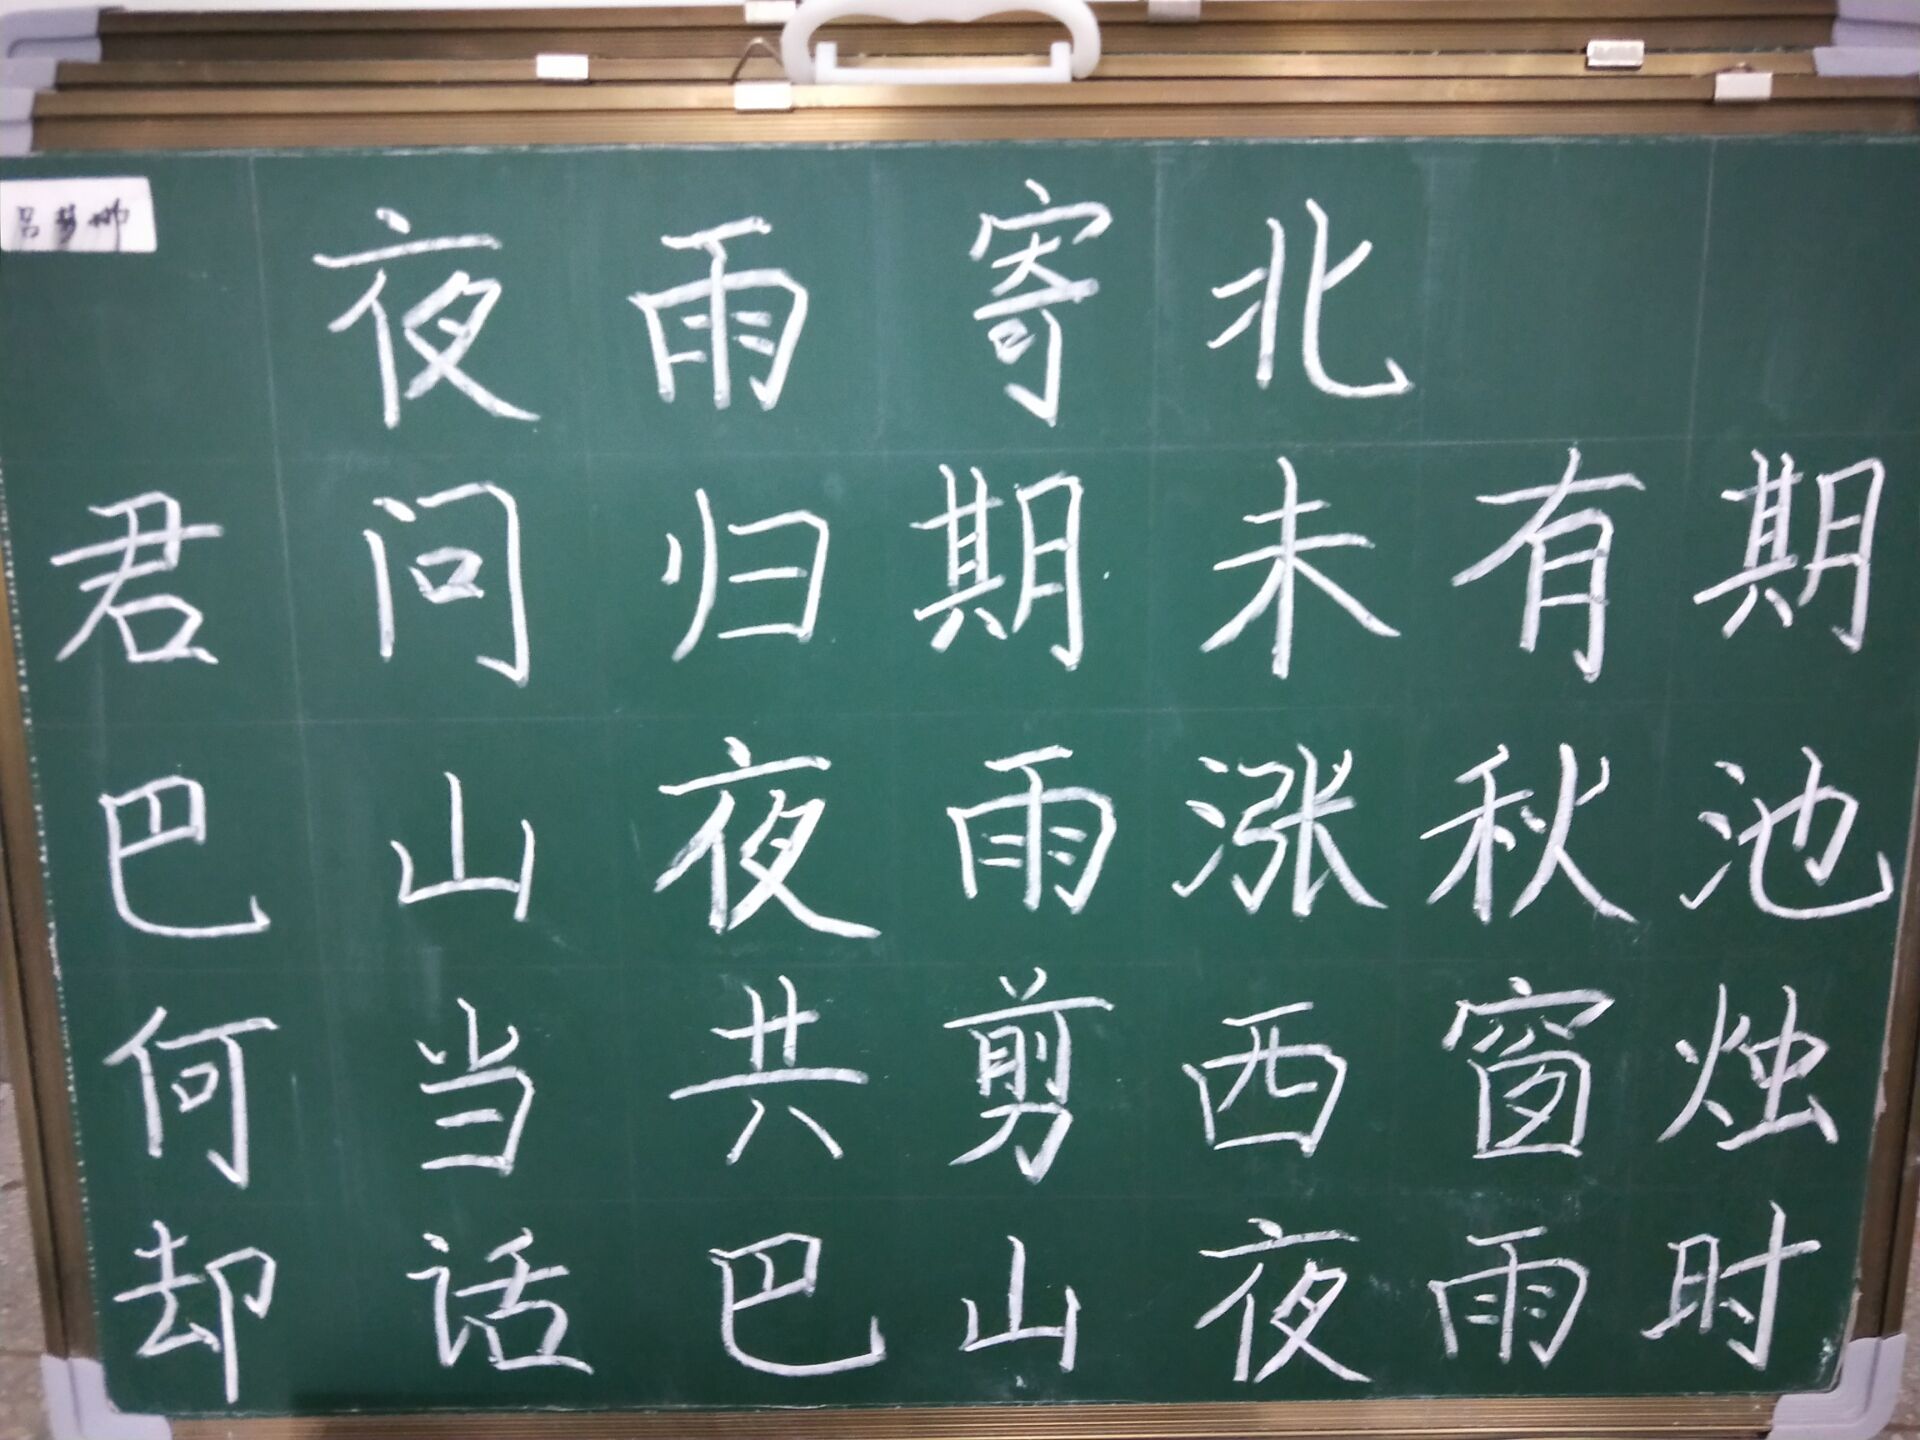 夜雨寄北
君问归期未有期
巴山夜雨涨秋池
何当共剪西窗烛
却话巴山夜雨时